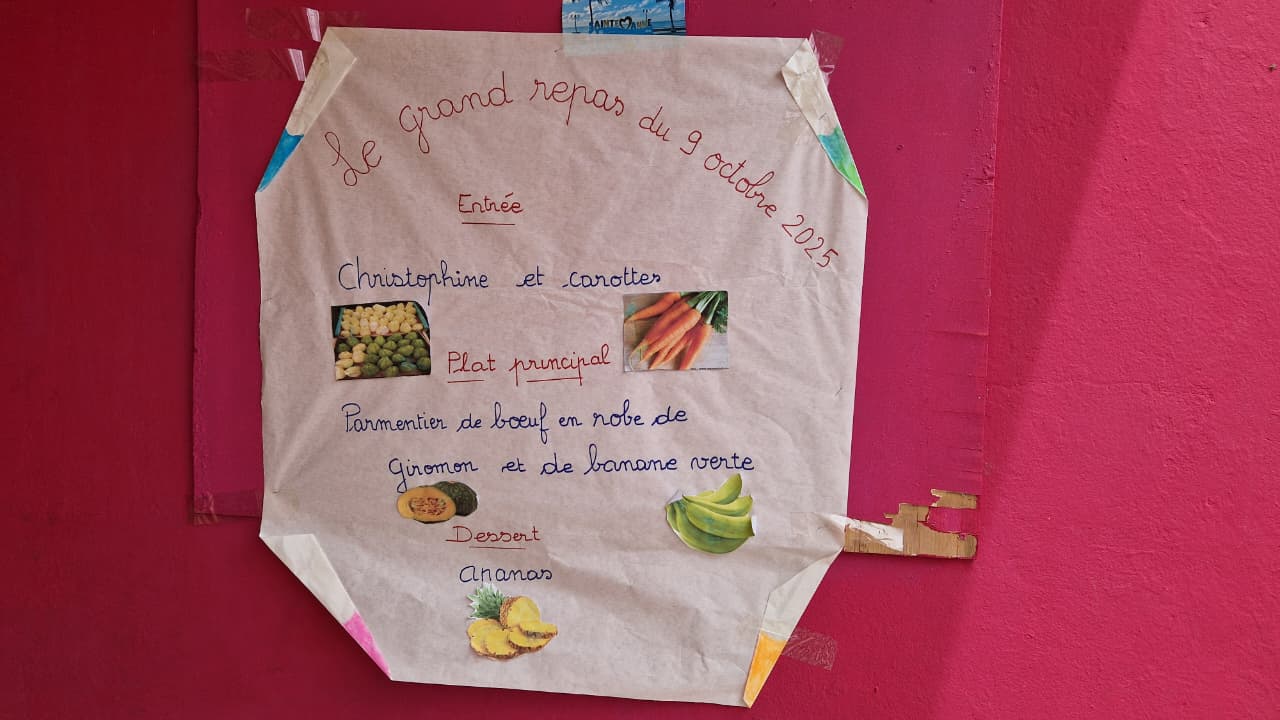 SAINTE ANNE
Le grand repas du 9 octobre 2025
Entrée
Christophine et carottes
Plat principal
Parmentier de bœuf en robe de
giromon et de banane verte
Dessert
ananas